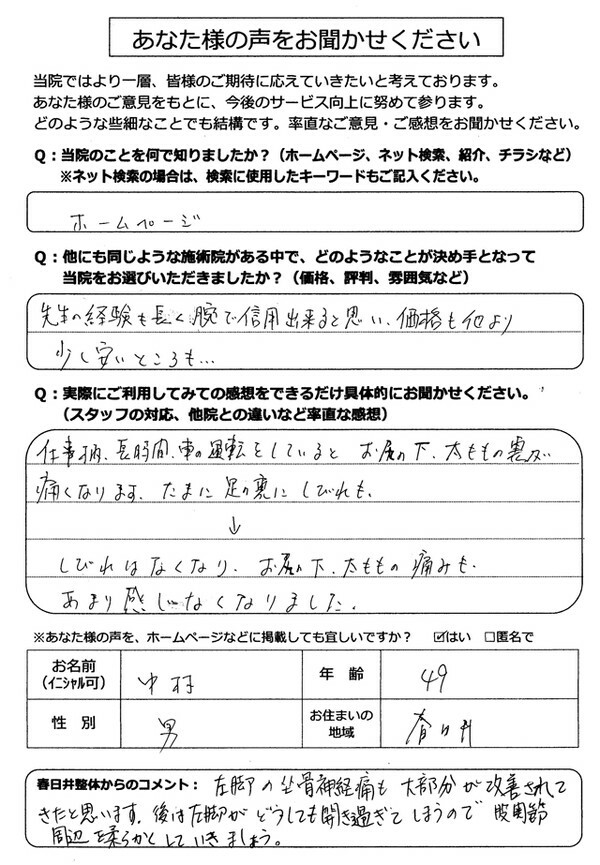 あなた様の声をお聞かせください
当院ではより一層、皆様のご期待に応えていきたいと考えております。
あなた様のご意見をもとに、今後のサービス向上に努めて参ります。
どのような些細なことでも結構です。率直なご意見・ご感想をお聞かせください。
Q：当院のことを何で知りましたか？（ホームページ、ネット検索、紹介、チラシなど）
※ネット検索の場合は、検索に使用したキーワードもご記入ください。
ホームページ
Q：他にも同じような施術院がある中で、どのようなことが決め手となって
当院をお選びいただきましたか？（価格、評判、雰囲気など）
先生の経験も長く腕で信用出来ると思い、価格も他より
少し安いところも…
Q：実際にご利用してみての感想をできるだけ具体的にお聞かせください。
（スタッフの対応、他院との違いなど率直な感想）
仕事柄、長時間、車の運転をしていると お尻の下、太ももの裏が
痛くなります。たまに足の裏にしびれも、
↓
しびれはなくなり、お尻の下、太ももの痛みも
あまり感じなくなりました。
※あなた様の声を、ホームページなどに掲載しても宜しいですか？ ☑はい ☐匿名で
お名前 中村 年 齢 49
（イニシャル可）
性 別 男 お住まいの 春日井
地域
春日井整体からのコメント：左脚の坐骨神経痛も大部分が改善されて
きたと思います。後は左脚がどうしても開き過ぎてしまうので股関節
周辺を柔らかくしていきましょう。